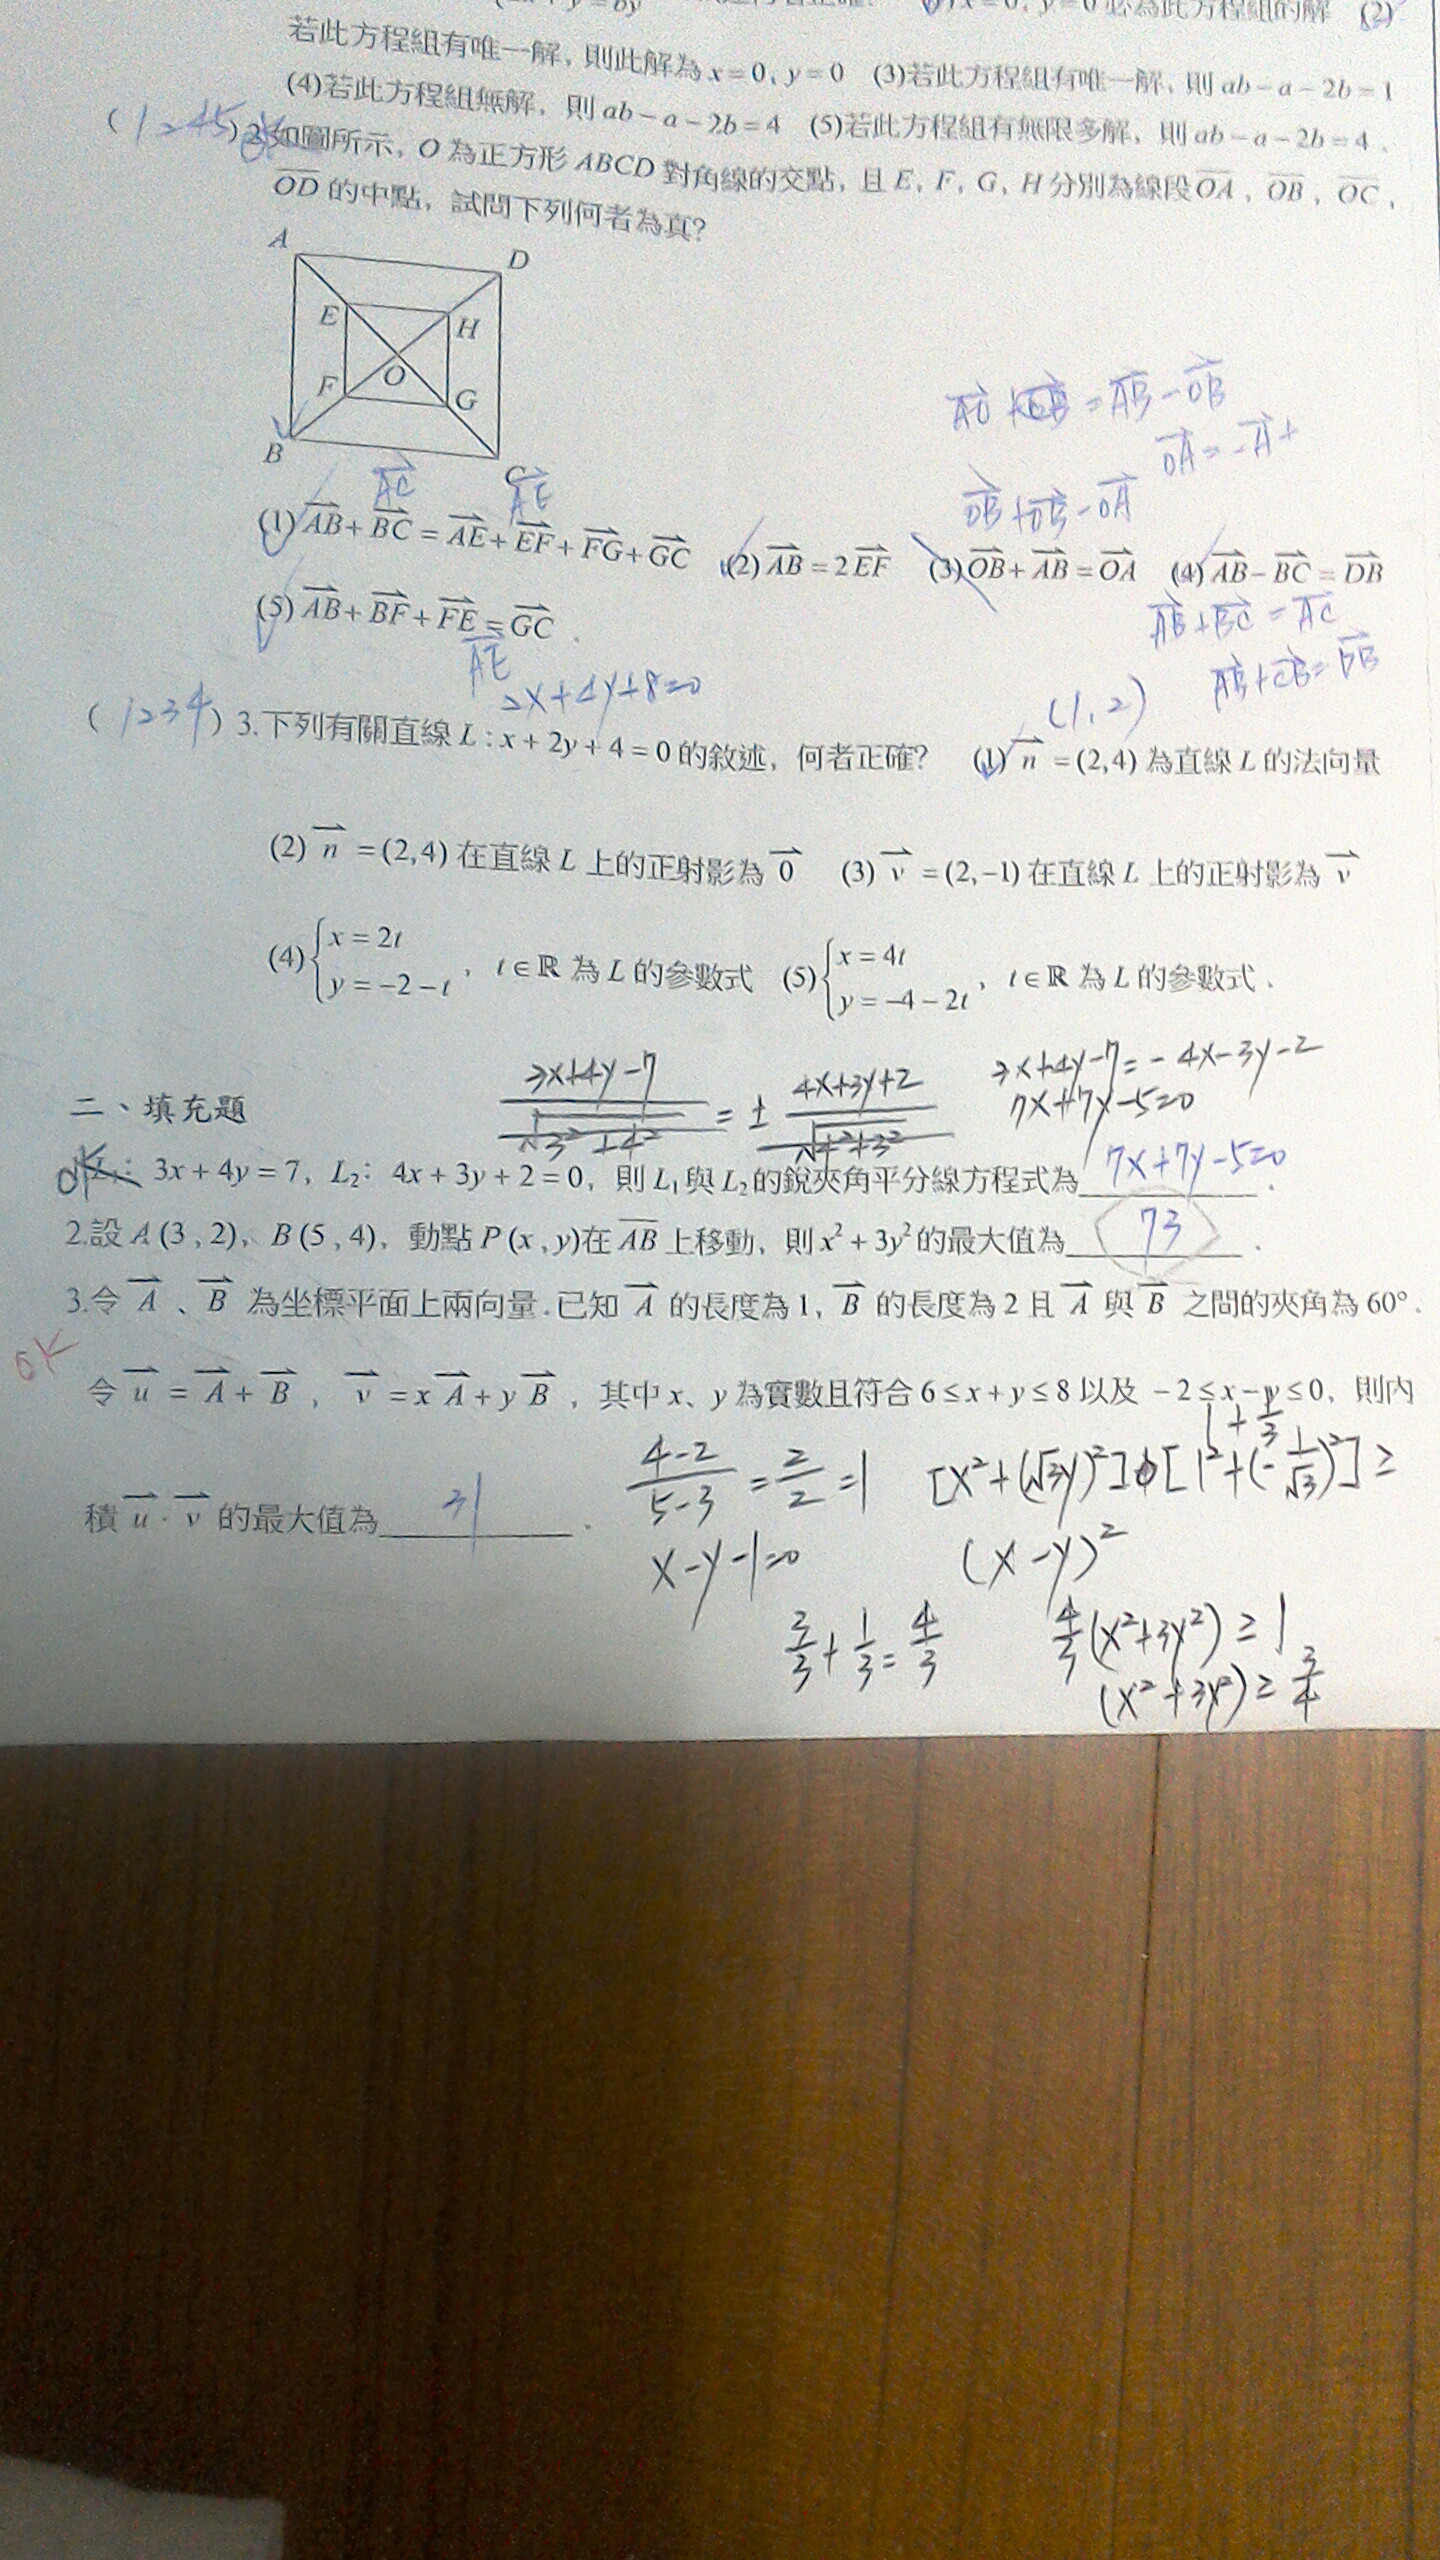 必為此方程組的解 (2)
若此方程組有唯一解, 則此解為 x = 0, y = 0 (3)若此方程組有唯一解, 則 ab − a − 2b = 1
(4)若此方程組無解, 則 ab − a − 2b = 4 (5)若此方程組有無限多解, 則 ab − a − 2b = 4 .
(1245) 2.如圖所示, O 為正方形 ABCD 對角線的交點, 且 E, F, G, H 分別為線段 \overline{OA}, \overline{OB}, \overline{OC},
\overline{OD} 的中點, 試問下列何者為真?
A
D
E
H
O
F
G
B
C
\vec{AO} = \vec{AB} − \vec{OB}
\vec{OB} + \vec{OB} − \vec{OA}
\vec{AC}
\vec{AE}
(1) \vec{AB} + \vec{BC} = \vec{AE} + \vec{EF} + \vec{FG} + \vec{GC} (2) \vec{AB} = 2\vec{EF} (3) \vec{OB} + \vec{AB} = \vec{OA} (4) \vec{AB} − \vec{BC} = \vec{DB}
(5) \vec{AB} + \vec{BF} + \vec{FE} = \vec{GC} .
\vec{AB} + \vec{BC} = \vec{AC}
\vec{AE}
\vec{AB} + \vec{CB} = \vec{DB}
2x+4y+8=0
(1,2)
(1234) 3.下列有關直線 L : x + 2y + 4 = 0 的敘述, 何者正確? (1) \vec{n} = (2,4) 為直線 L 的法向量
(2) \vec{n} = (2,4) 在直線 L 上的正射影為 \vec{0} (3) \vec{v} = (2,−1) 在直線 L 上的正射影為 \vec{v}
(4) { x = 2t
y = −2 − t , t ∈ ℝ 為 L 的參數式 (5) { x = 4t
y = −4 − 2t , t ∈ ℝ 為 L 的參數式 .
3x+4y−7 / √3²+4² = ± 4x+3y+2 / √4²+3²
3x+4y−7 = −4x−3y−2
7x+7y−5=0
二、填充題
OK : 3x + 4y = 7, L₂: 4x + 3y + 2 = 0, 則 L₁ 與 L₂ 的銳夾角平分線方程式為 7x+7y−5=0 .
2.設 A (3 , 2), B (5 , 4), 動點 P (x , y)在 \overline{AB} 上移動, 則 x² + 3y² 的最大值為 73 .
3.令 \vec{A} 、 \vec{B} 為坐標平面上兩向量.已知 \vec{A} 的長度為 1, \vec{B} 的長度為 2 且 \vec{A} 與 \vec{B} 之間的夾角為 60° .
OK
令 \vec{u} = \vec{A} + \vec{B} , \vec{v} = x\vec{A} + y\vec{B} , 其中 x、y 為實數且符合 6 ≤ x + y ≤ 8 以及 −2 ≤ x − y ≤ 0, 則內
1 + 1/3
積 \vec{u} · \vec{v} 的最大值為 31 .
4−2 / 5−3 = 2/2 = 1
[x²+(√3y)²] [1²+(−1/√3)²] ≥
x−y−1=0
(x−y)²
3/3 + 1/3 = 4/3
4/3 (x²+3y²) ≥ 1
(x²+3y²) ≥ 3/4